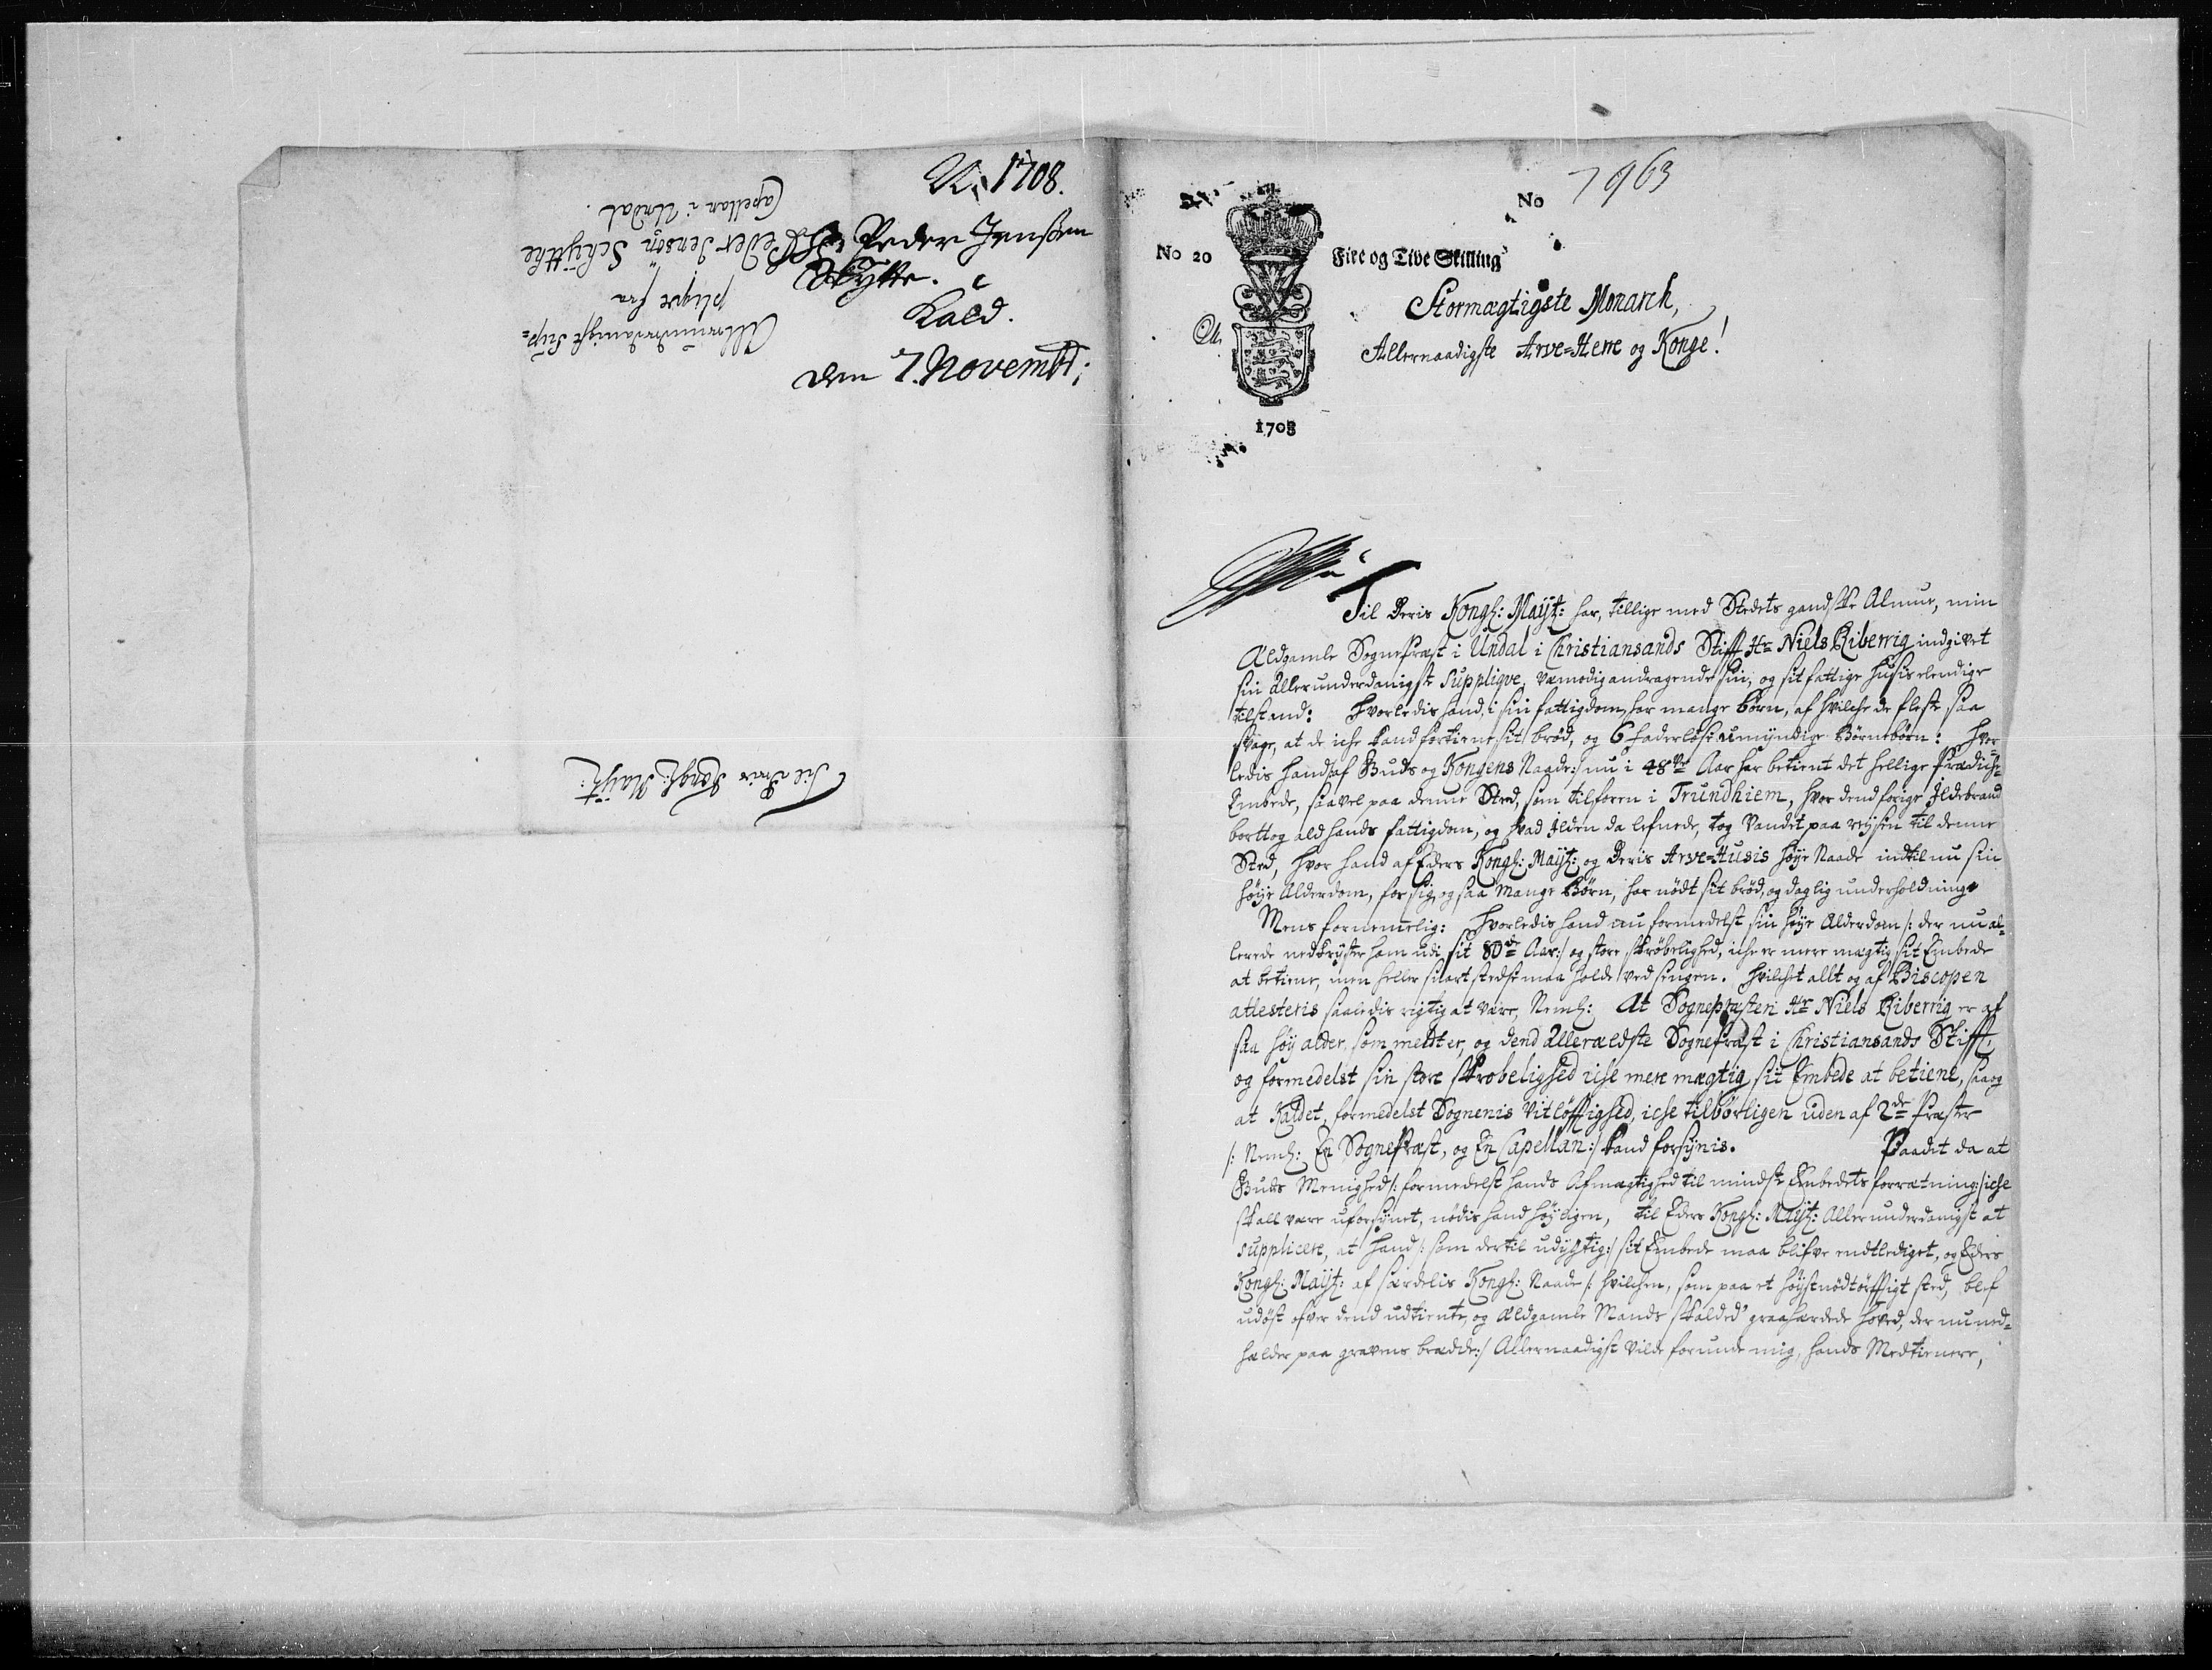 N. 1708.
Hr Peder Jensen
Skytte.
Kald.
den 7. Novembr:
Allerunderdanigst Sup=
pliqve fra
Hr Peder Jensøn Schÿtthe
Capellan i Undal.
Til Deris Kongl: Maÿt:
No 7963
No 20
Fire og Tive Skilling
1708
Stormægtigste Monarch,
Allernaadigste Arve=Herre og Konge!
Til Deris Kongl: Maÿt: har, tillige med Stedets gandske Almue, min
Ældgamle Sognepræst i Undal i Christiansands Stifft Hr Niels Riberrig indgivet
sin allerunderdanigste Suppliqve, vemodig andragende sin, og sit fattige Husis elendige
tilstand: Hvorledis hand, i sin fattigdom, har mange børn, af hvilche de fleste saa
svage, at de iche kand fortiene sit brød, og 6 faderløse umÿndige Børnebørn: Hvor=
ledis hand /: af Guds og Kongens Naade :/ nu i 48de Aar har betient det hellige Prædiche
Embede, saavel paa denne Sted, som tilforen i Trundhiem, hvor dend forige Ildebrand
borttog ald hands fattigdom, og hvad Ilden da lefnede, tog Vandet paa reÿsen til denne
Sted, hvor hand af Eders Kongl: Maÿt: og Deris Arve=Husis høÿe Naade indtil nu sin
høÿe Alderdom, for sig og saa mange Børn, har nødt sit brød, og daglig underholdning.
Mens fornemelig: Hvorledis hand nu formedelst sin høÿe Alderdom /: der nu al=
lerede nedtrÿcker ham udi sit 80de Aar :/ og store skrøbelighed, iche er mere mægtig sit Embede
at betiene, men heller snart stedse maa holde ved sengen. Hvilchet allt og af Biscopen
attesteris saaledis rigtig at være, Neml: At Sognepræsten Hr Niels Riberrig er af
saa høÿ alder, som meldt er, og dend allerældste Sognepræst i Christiansands Stifft,
og formedelst sin store skrøbelighed iche mere mægtig sit Embede at betiene, saa og
at Kaldet, formedelst Sognenis Vitløfftighed, iche tilbørligen uden af 2de Præster
/: Neml: En Sognepræst, og En Capellan :/ kand forsÿnis. Paadet da at
Guds Menighed /: formedelst hands Afmægtighed til mindste Embedets forretning :/ iche
skall være uforsÿnet, nødis hand høÿligen, til Eders Kongl: Maÿt: Allerunderdanigst at
supplicere, at hand /: som dertil udÿgtig :/ sit Embede maa blifve endtlediget, og Eders
Kongl: Maÿt: af særdelis Kongl: Naade /: hvilchen, som paa et høÿstnødtørfftigt sted, blef
udøst ofver dend udtiente, og ældgamle Mands skalded' graahærdede hoved, der nu ned=
hælder paa gravens bredde :/ Allernaadigst vilde forunde mig, hands Medtienere,